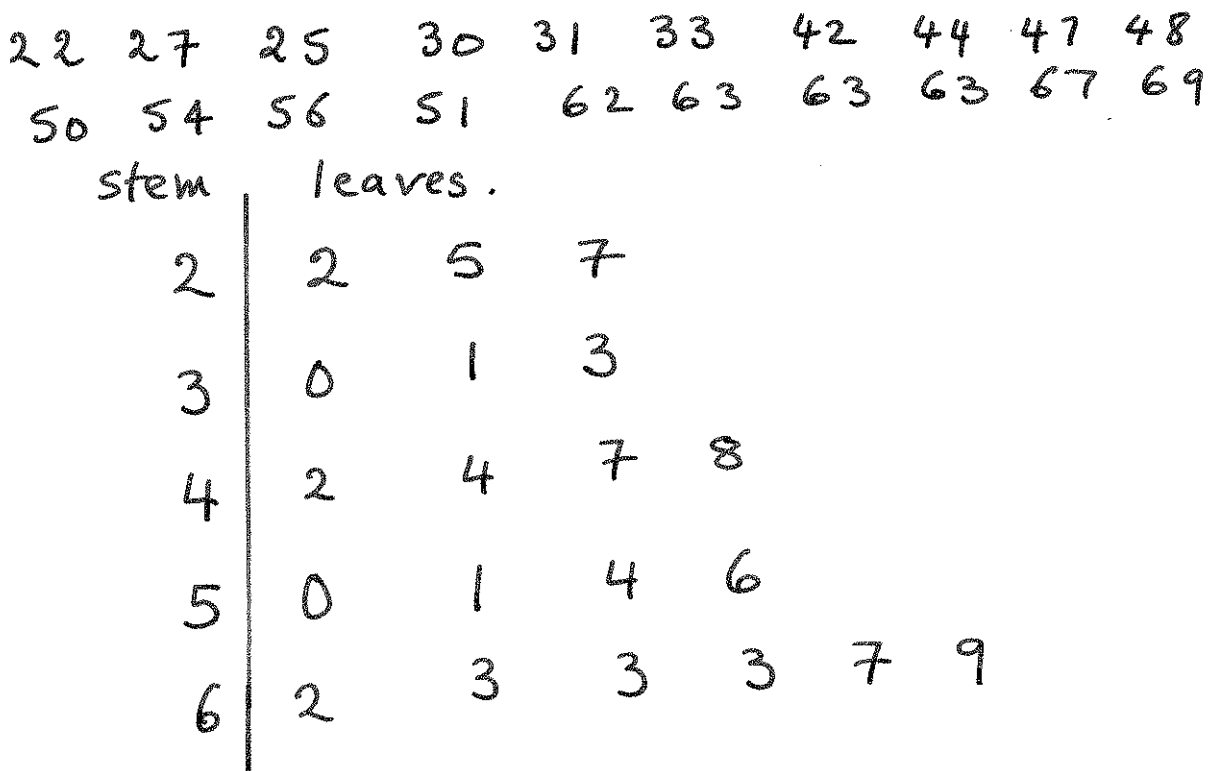 22 27 25 30 31 33 42 44 47 48
50 54 56 51 62 63 63 63 67 69
stem leaves.
2 2 5 7
3 0 1 3
4 2 4 7 8
5 0 1 4 6
6 2 3 3 3 7 9